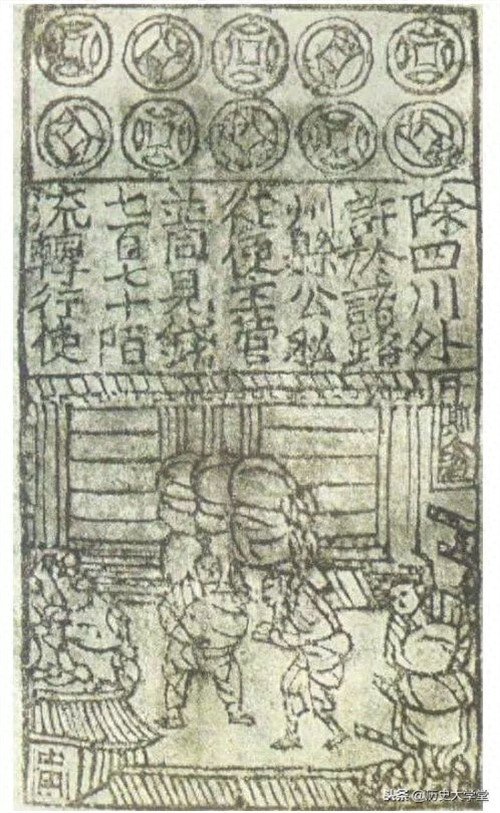 除四川外
許於諸路
州縣公私
從便主管
並同見錢
七百七十陌
流轉行使
千斯倉
头条 @历史大学堂